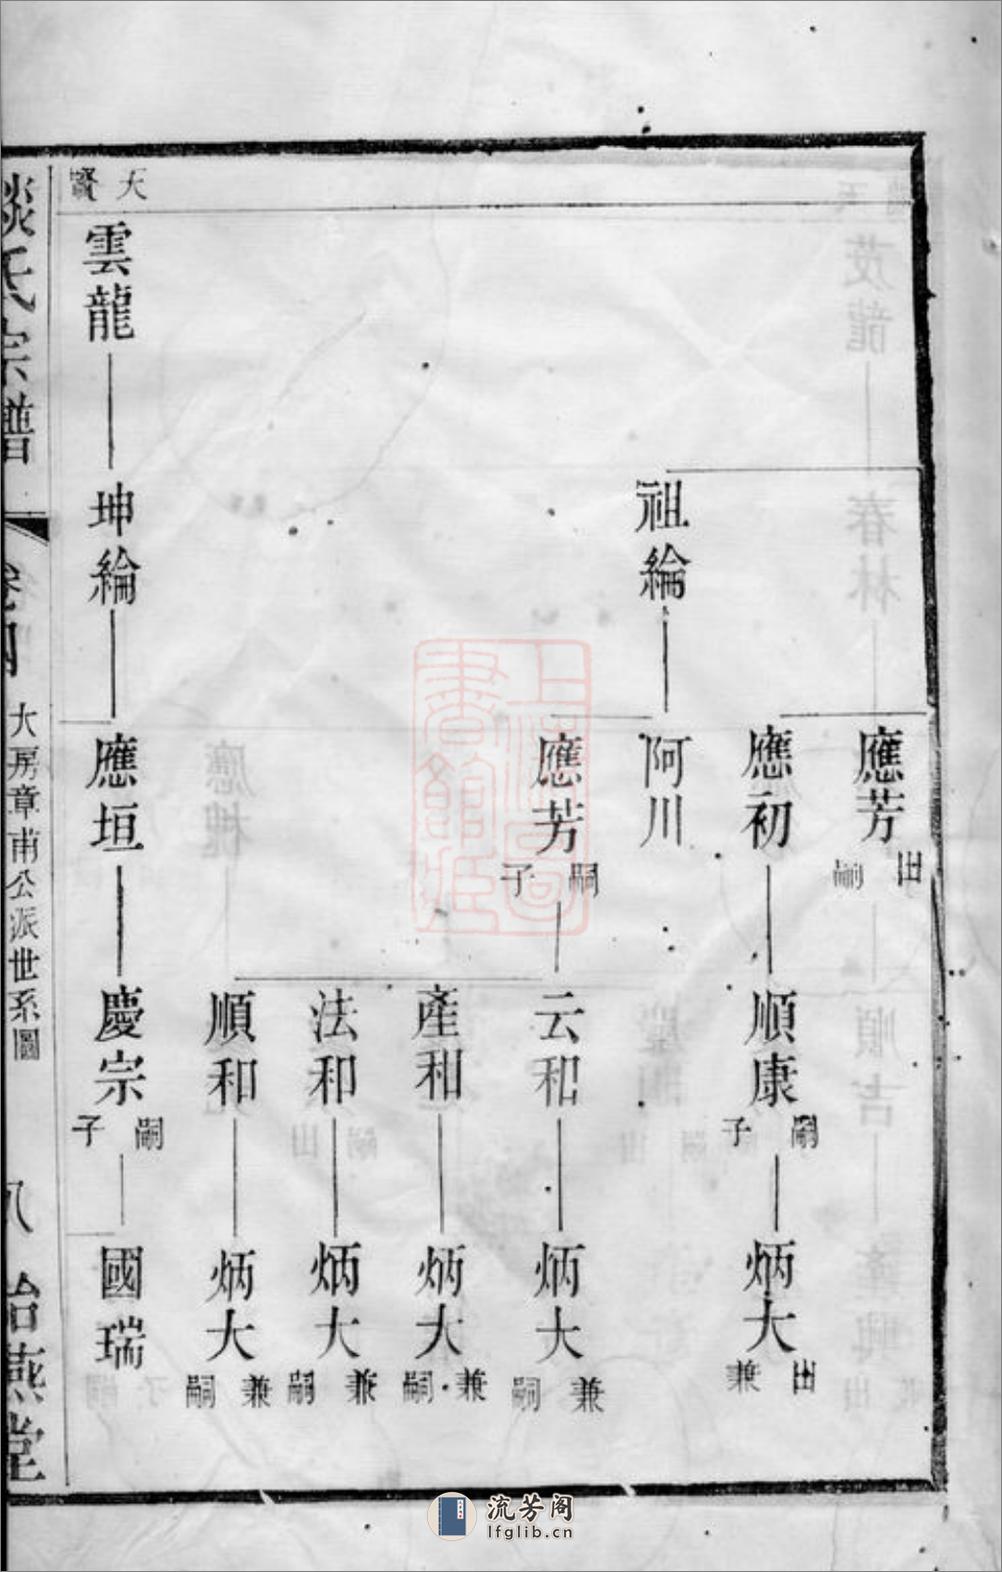 應芳 出嗣
應初
順康 嗣子
炳大 出兼
祖綸
阿川
應芳 嗣子
云和
炳大 兼嗣
產和
炳大 兼嗣
法和
炳大 兼嗣
順和
炳大 兼嗣
天寶
雲龍
坤綸
應垣
慶宗 嗣子
國瑞
氏宗譜
卷四
大房章甫公派世系圖
八
燕堂
上海圖書館藏
流芳阁
lfglib.cn